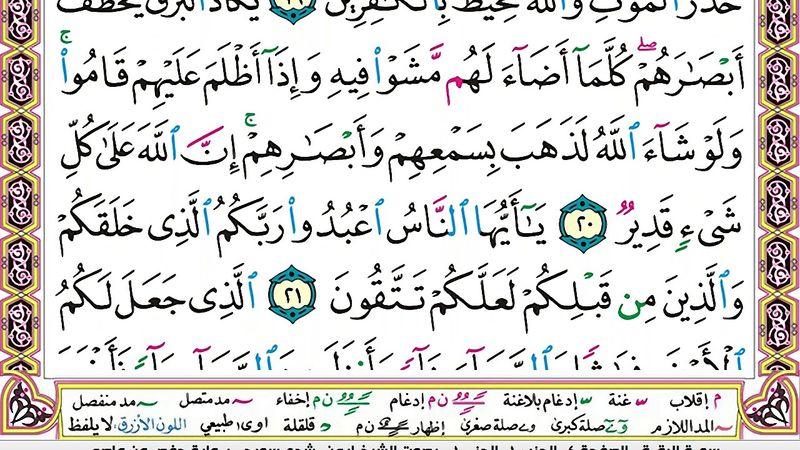 حَذَرَ ٱلْمَوْتِ وَٱللَّهُ مُحِيطٌۢ بِٱلْكَٰفِرِينَ ١٩ يَكَادُ ٱلْبَرْقُ يَخْطَفُ
أَبْصَٰرَهُمْ ۖ كُلَّمَآ أَضَآءَ لَهُم مَّشَوْا۟ فِيهِ وَإِذَآ أَظْلَمَ عَلَيْهِمْ قَامُوا۟ ۚ
وَلَوْ شَآءَ ٱللَّهُ لَذَهَبَ بِسَمْعِهِمْ وَأَبْصَٰرِهِمْ ۚ إِنَّ ٱللَّهَ عَلَىٰ كُلِّ
شَىْءٍ قَدِيرٌ ٢٠ يَٰٓأَيُّهَا ٱلنَّاسُ ٱعْبُدُوا۟ رَبَّكُمُ ٱلَّذِى خَلَقَكُمْ
وَٱلَّذِينَ مِن قَبْلِكُمْ لَعَلَّكُمْ تَتَّقُونَ ٢١ ٱلَّذِى جَعَلَ لَكُمُ
م إقلاب غنة إدغام بلاغنة ن م إدغام ن م إخفاء مد متصل مد منفصل
المد اللازم صلة كبرى صلة صغرى إظهار ن م قلقلة اوى، طبيعي اللون الأزرق، لا يلفظ